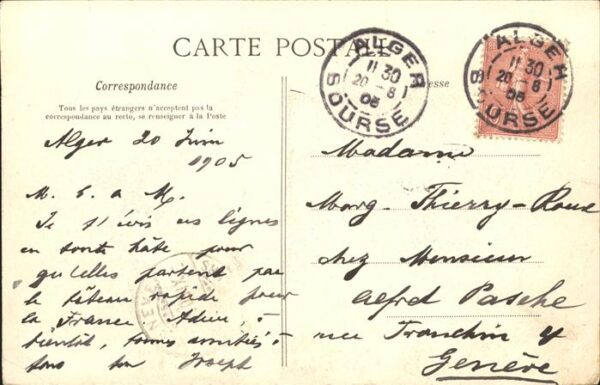 CARTE POSTALE
Correspondance
Tous les pays étrangers n'acceptent pas la
correspondance au recto, se renseigner à la Poste
Alger 20 Juin
1905
M. E. a M.
Je t'écris ces lignes
en toute hâte pour
qu'elles partent par
le bâteau rapide pour
la France Adieu, à
bientôt, bonnes amitiés à
tous ton Joseph
ALGER
11 30
20 - 6
05
BOURSE
esse
ALGER
11 30
20 - 6
05
BOURSE
Madame
Marg. Thierry-Roux
chez Monsieur
Alfred Pasche
rue Tronchin 4
Genève